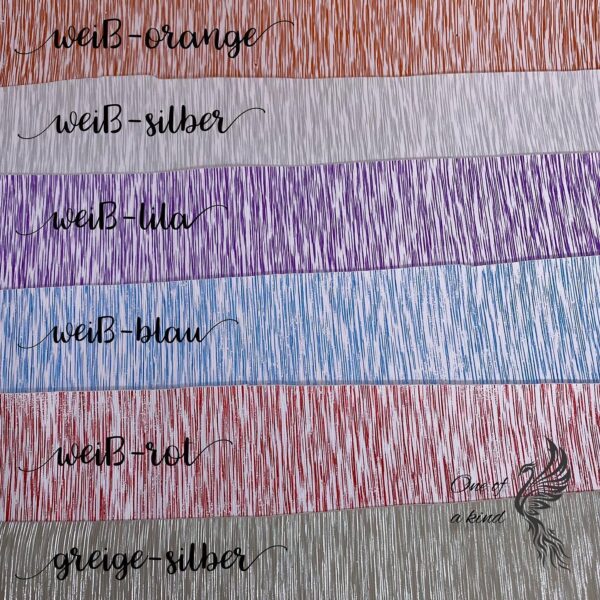 weiß-orange
weiß-silber
weiß-lila
weiß-blau
weiß-rot
One of
a kind
greige-silber